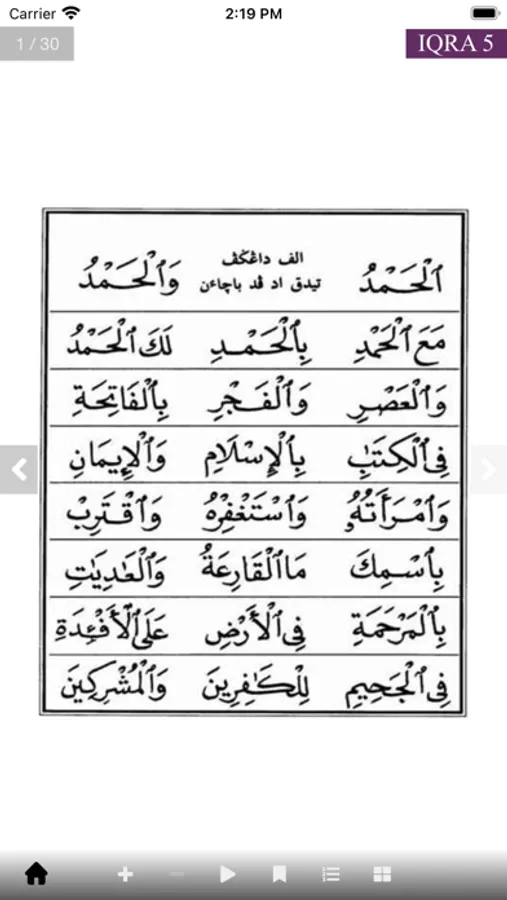 Carrier 2:19 PM
1 / 30 IQRA 5
ٱلْحَمْدُ الف داڠكڤ تيدق اد ڤد باچاءن وَٱلْحَمْدُ
مَعَ ٱلْحَمْدِ بِٱلْحَمْدِ لَكَ ٱلْحَمْدُ
وَٱلْعَصْرِ وَٱلْفَجْرِ بِٱلْفَاتِحَةِ
فِى ٱلْكِتَٰبِ بِٱلْإِسْلَامِ وَٱلْإِيمَانِ
وَٱمْرَأَتُهُۥ وَٱسْتَغْفِرْهُ وَٱقْتَرِبْ
بِٱسْمِكَ مَا ٱلْقَارِعَةُ وَٱلْعَٰدِيَٰتِ
بِٱلْمَرْحَمَةِ فِى ٱلْأَرْضِ عَلَى ٱلْأَفْـِٔدَةِ
فِى ٱلْجَحِيمِ لِلْكَٰفِرِينَ وَٱلْمُشْرِكِينَ